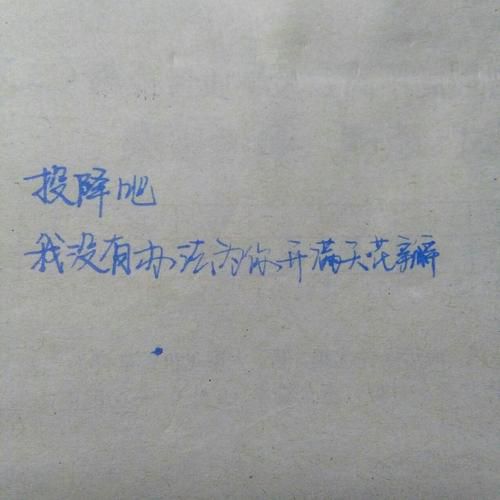 投降吧
我没有办法为你开满天花瓣